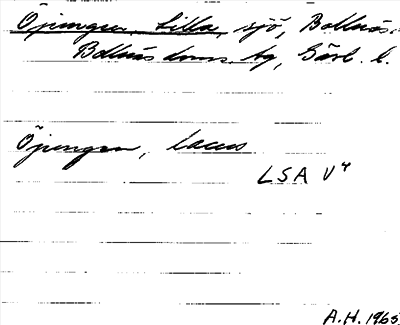 Öjungen, Lilla, sjö, Bollnäs s.
Bollnäs doms. tg, Gävl. l.
Öjungen, lacus
LSA V4
A.H. 1965